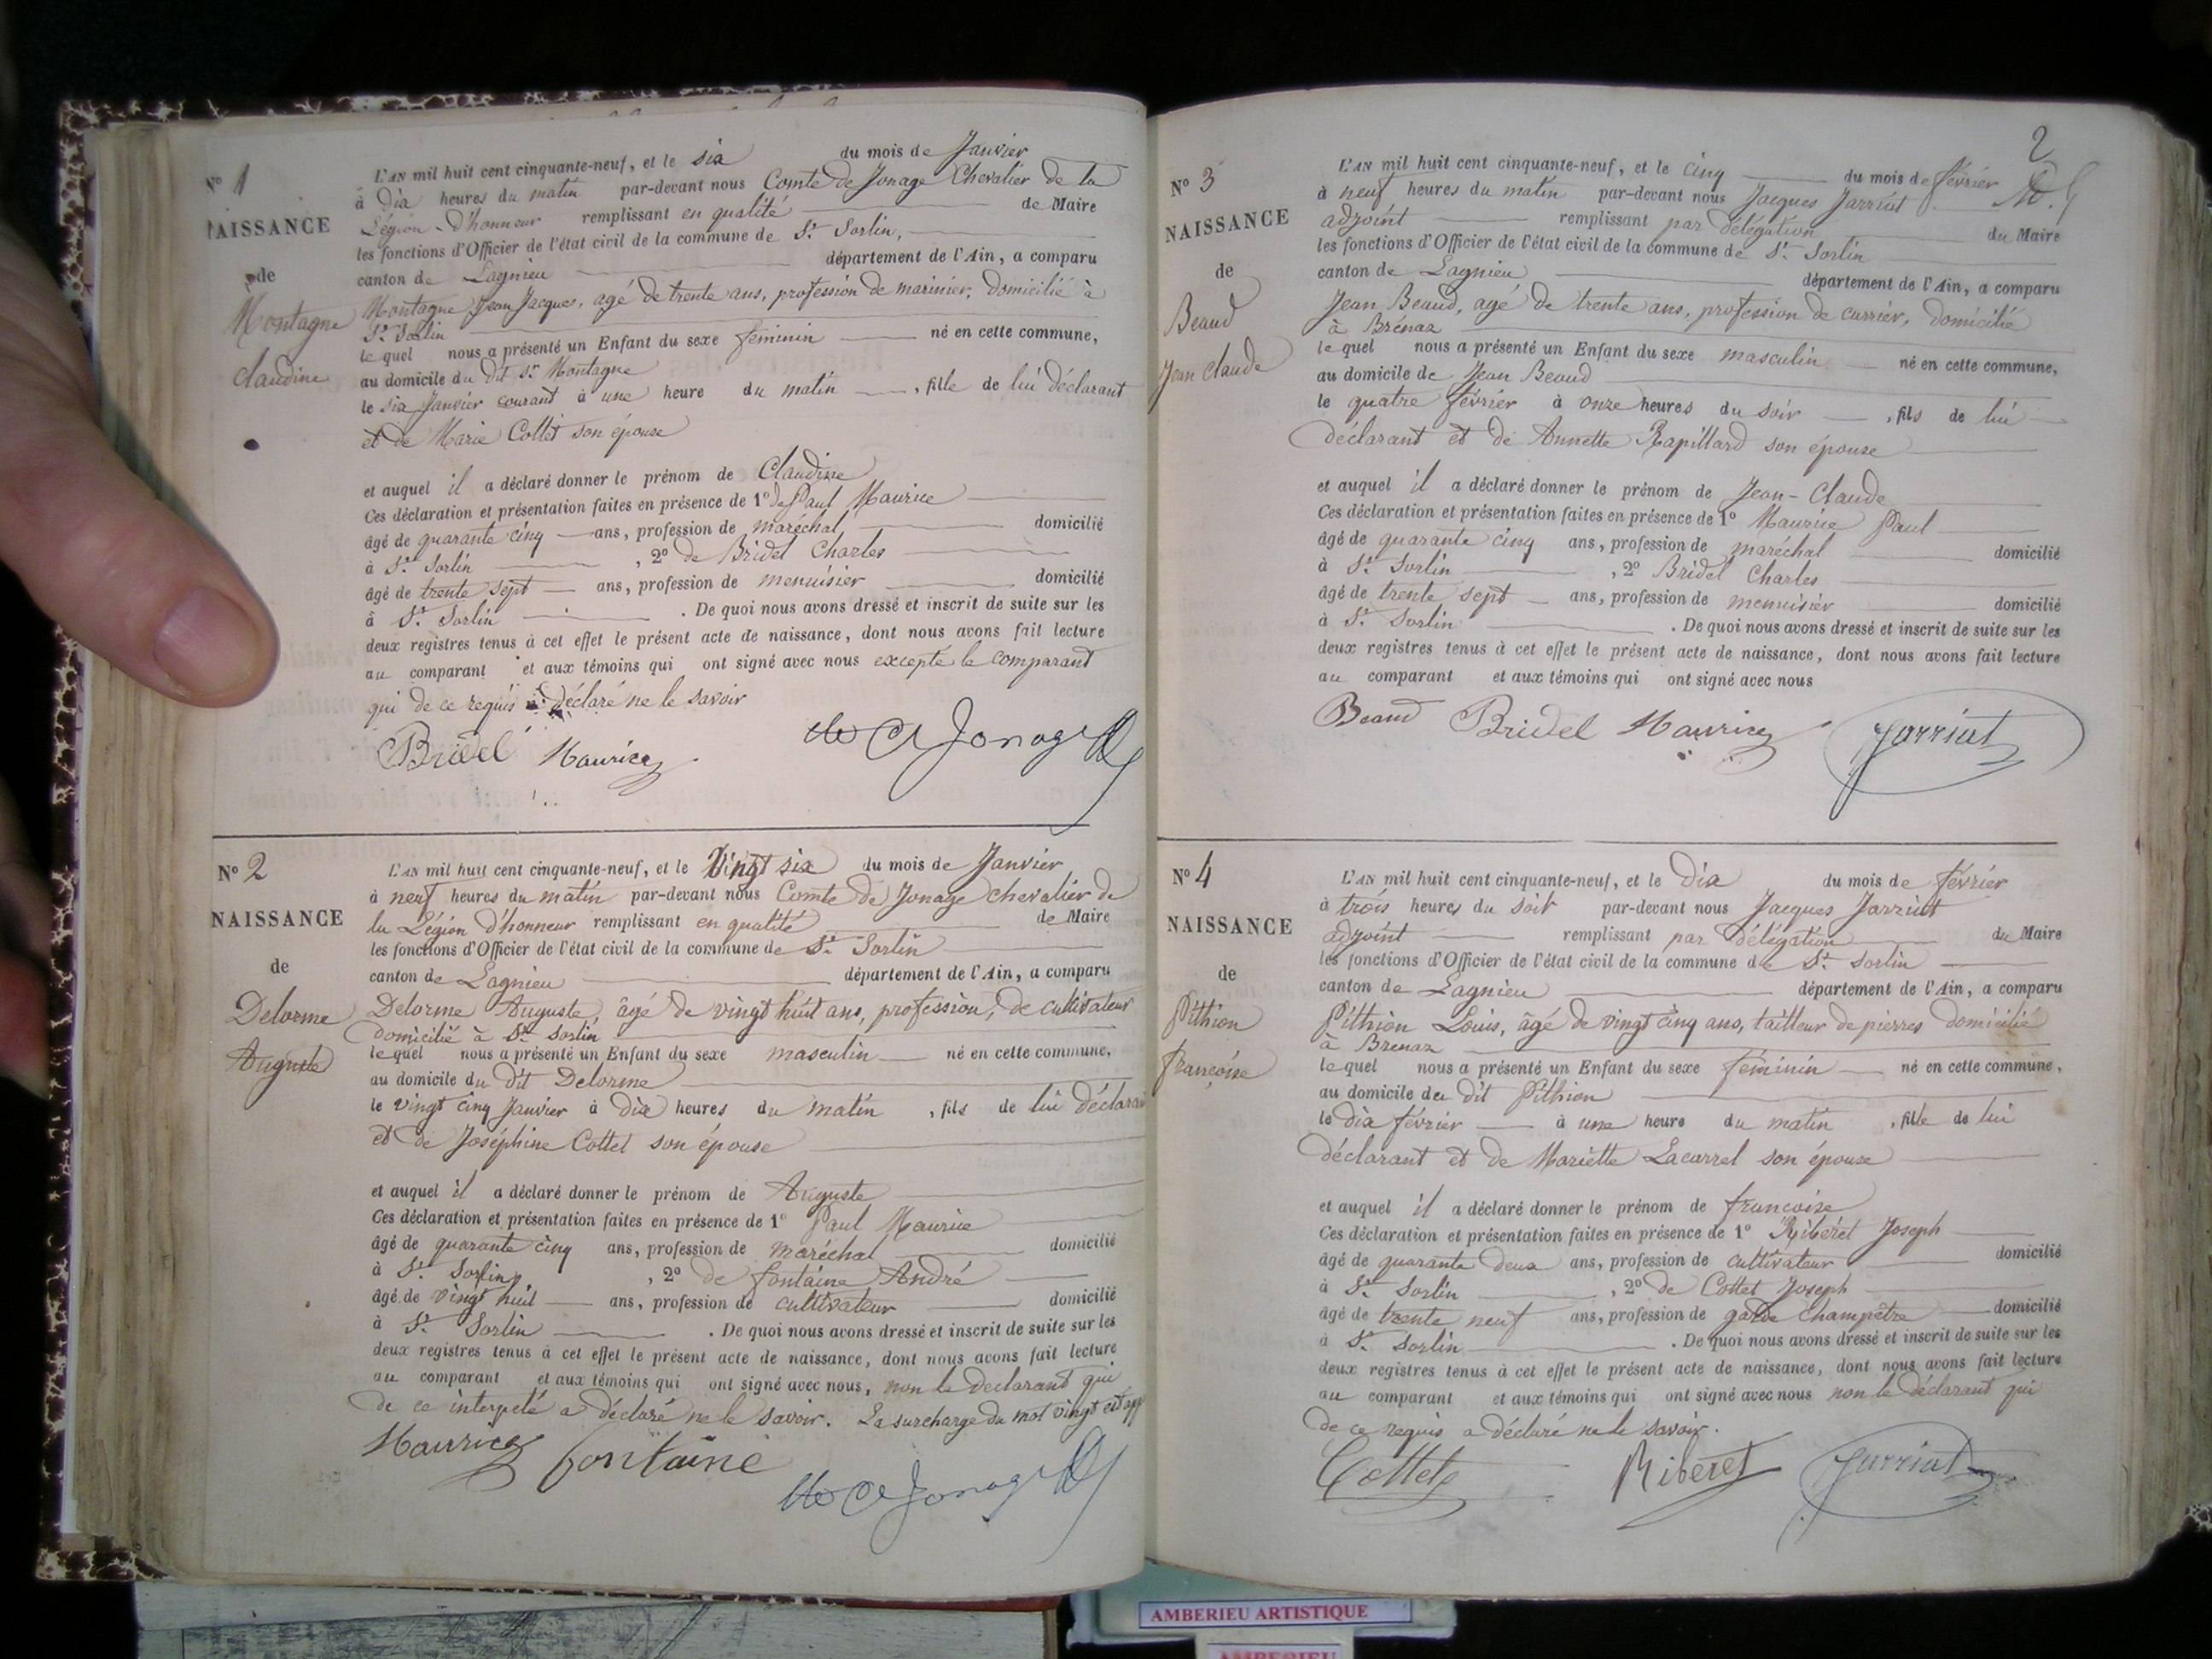 N° 1
NAISSANCE
de
Montagne
Claudine
L'AN mil huit cent cinquante-neuf, et le six du mois de Janvier
à dix heures du matin par-devant nous Comte de Jonage Chevalier de la
Légion d'honneur remplissant en qualité de Maire
les fonctions d'Officier de l'état civil de la commune de St. Sorlin,
canton de Lagnieu département de l'Ain, a comparu
Montagne Jean Jacques, agé de trente ans, profession de marinier, domicilié à
St. Sorlin
lequel nous a présenté un Enfant du sexe féminin né en cette commune,
au domicile du dit sr. Montagne
le six Janvier courant à une heure du matin, fille de lui déclarant
et de Marie Collet son épouse
et auquel il a déclaré donner le prénom de Claudine
Ces déclaration et présentation faites en présence de 1° de Paul Maurice
âgé de quarante cinq ans, profession de maréchal domicilié
à St. Sorlin, 2° de Bridel Charles
âgé de trente sept ans, profession de menuisier domicilié
à St. Sorlin. De quoi nous avons dressé et inscrit de suite sur les
deux registres tenus à cet effet le présent acte de naissance, dont nous avons fait lecture
au comparant et aux témoins qui ont signé avec nous excepté le comparant
qui de ce requis a déclaré ne le savoir
Bridel Maurice Jonage
N° 2
NAISSANCE
de
Delorme
Auguste
L'AN mil huit cent cinquante-neuf, et le Vingt six du mois de Janvier
à neuf heures du matin par-devant nous Comte de Jonage chevalier de
la Légion d'honneur remplissant en qualité de Maire
les fonctions d'Officier de l'état civil de la commune de St. Sorlin
canton de Lagnieu département de l'Ain, a comparu
Delorme Auguste, âgé de vingt huit ans, profession, de cultivateur
domicilié à St. Sorlin
lequel nous a présenté un Enfant du sexe masculin né en cette commune,
au domicile du dit Delorme
le vingt cinq Janvier à dix heures du matin, fils de lui déclarant
et de Joséphine Cottet son épouse
et auquel il a déclaré donner le prénom de Auguste
Ces déclaration et présentation faites en présence de 1° Paul Maurice
âgé de quarante cinq ans, profession de maréchal domicilié
à St. Sorlin, 2° de fontaine André
âgé de vingt huit ans, profession de cultivateur domicilié
à St. Sorlin. De quoi nous avons dressé et inscrit de suite sur les
deux registres tenus à cet effet le présent acte de naissance, dont nous avons fait lecture
au comparant et aux témoins qui ont signé avec nous, non le déclarant qui
de ce interpelé a déclaré ne le savoir. La surcharge du mot vingt est app
Maurice fontaine Jonage
2
N° 3
NAISSANCE
de
Beaud
Jean Claude
L'AN mil huit cent cinquante-neuf, et le cinq du mois de février
à neuf heures du matin par-devant nous Jacques Jarriat
adjoint remplissant par délégation du Maire
les fonctions d'Officier de l'état civil de la commune de St. Sorlin
canton de Lagnieu département de l'Ain, a comparu
Jean Beaud, agé de trente ans, profession de carrier, domicilié
à Brénaz
lequel nous a présenté un Enfant du sexe masculin né en cette commune,
au domicile de Jean Beaud
le quatre février à onze heures du soir, fils de lui
déclarant et de Annette Rapillard son épouse
et auquel il a déclaré donner le prénom de Jean-Claude
Ces déclaration et présentation faites en présence de 1° Maurice Paul
âgé de quarante cinq ans, profession de maréchal domicilié
à St. Sorlin, 2° Bridel Charles
âgé de trente sept ans, profession de menuisier domicilié
à St. Sorlin. De quoi nous avons dressé et inscrit de suite sur les
deux registres tenus à cet effet le présent acte de naissance, dont nous avons fait lecture
au comparant et aux témoins qui ont signé avec nous
Beaud Bridel Maurice Jarriat
N° 4
NAISSANCE
de
Pithion
françoise
L'AN mil huit cent cinquante-neuf, et le Dix du mois de février
à trois heures du soir par-devant nous Jacques Jarriat
adjoint remplissant par délégation du Maire
les fonctions d'Officier de l'état civil de la commune de St. Sorlin
canton de Lagnieu département de l'Ain, a comparu
Pithion Louis, âgé de vingt cinq ans, tailleur de pierres domicilié
à Brenaz
lequel nous a présenté un Enfant du sexe féminin né en cette commune,
au domicile du dit Pithion
le dix février à une heure du matin, fille de lui
déclarant et de Mariette Lacarrel son épouse
et auquel il a déclaré donner le prénom de francoise
Ces déclaration et présentation faites en présence de 1° Riberet Joseph
âgé de quarante deux ans, profession de cultivateur domicilié
à St. Sorlin, 2° de Cottet Joseph
âgé de trente neuf ans, profession de garde champêtre domicilié
à St. Sorlin. De quoi nous avons dressé et inscrit de suite sur les
deux registres tenus à cet effet le présent acte de naissance, dont nous avons fait lecture
au comparant et aux témoins qui ont signé avec nous non le déclarant qui
de ce requis a déclaré ne le savoir.
Cottet Riberet Jarriat
AMBERIEU ARTISTIQUE
AMBERIEU